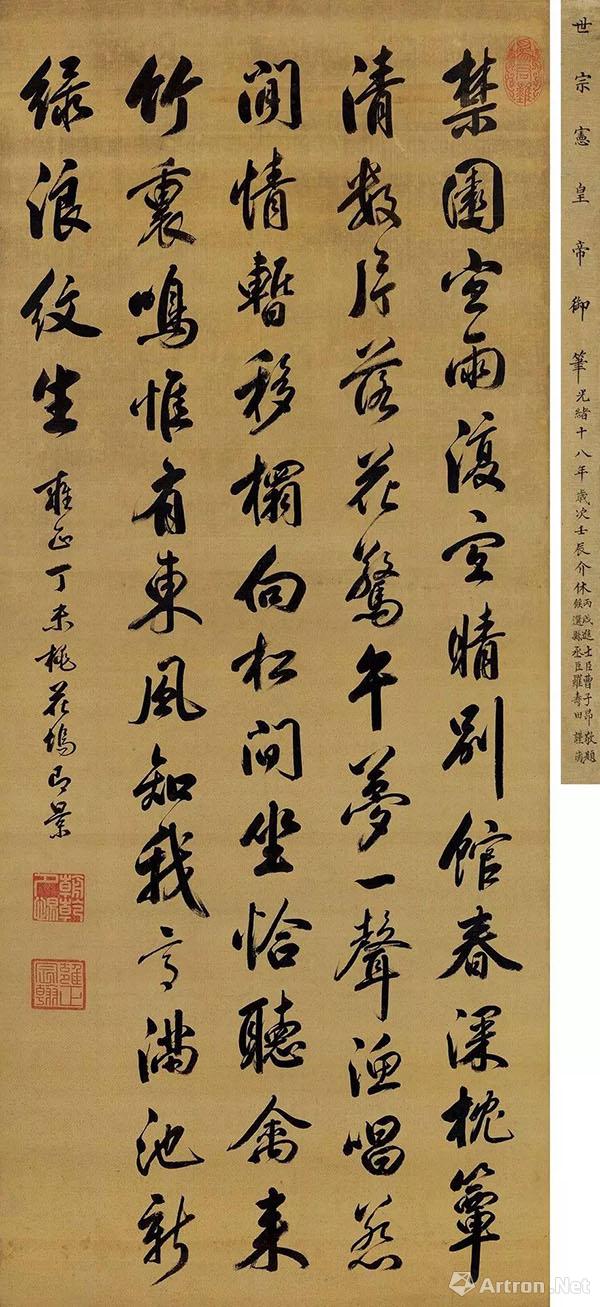 世宗憲皇帝御筆光緒十八年歲次壬辰介休
丙戌進士臣曹子昂敬題
候選縣丞臣羅壽田謹
為君難
禁園宜雨復宜晴別館春深枕簟
清數片落花驚午夢一聲漁唱惹
閒情暫移榻向松間坐恰聽禽來
竹裏鳴惟有東風知我滿池新
綠浪紋生
雍正丁未桃花塢即景
朝乾夕惕
雍正宸翰
Artron.Net